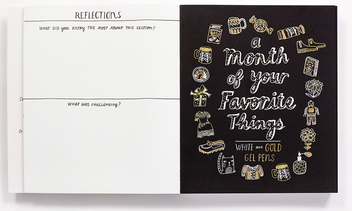 REFLECTIONS
WHAT DID YOU ENJOY THE MOST ABOUT THIS SECTION?
WHAT WAS CHALLENGING?
a
Month
of your
Favorite
Things
WHITE AND GOLD
GEL PENS